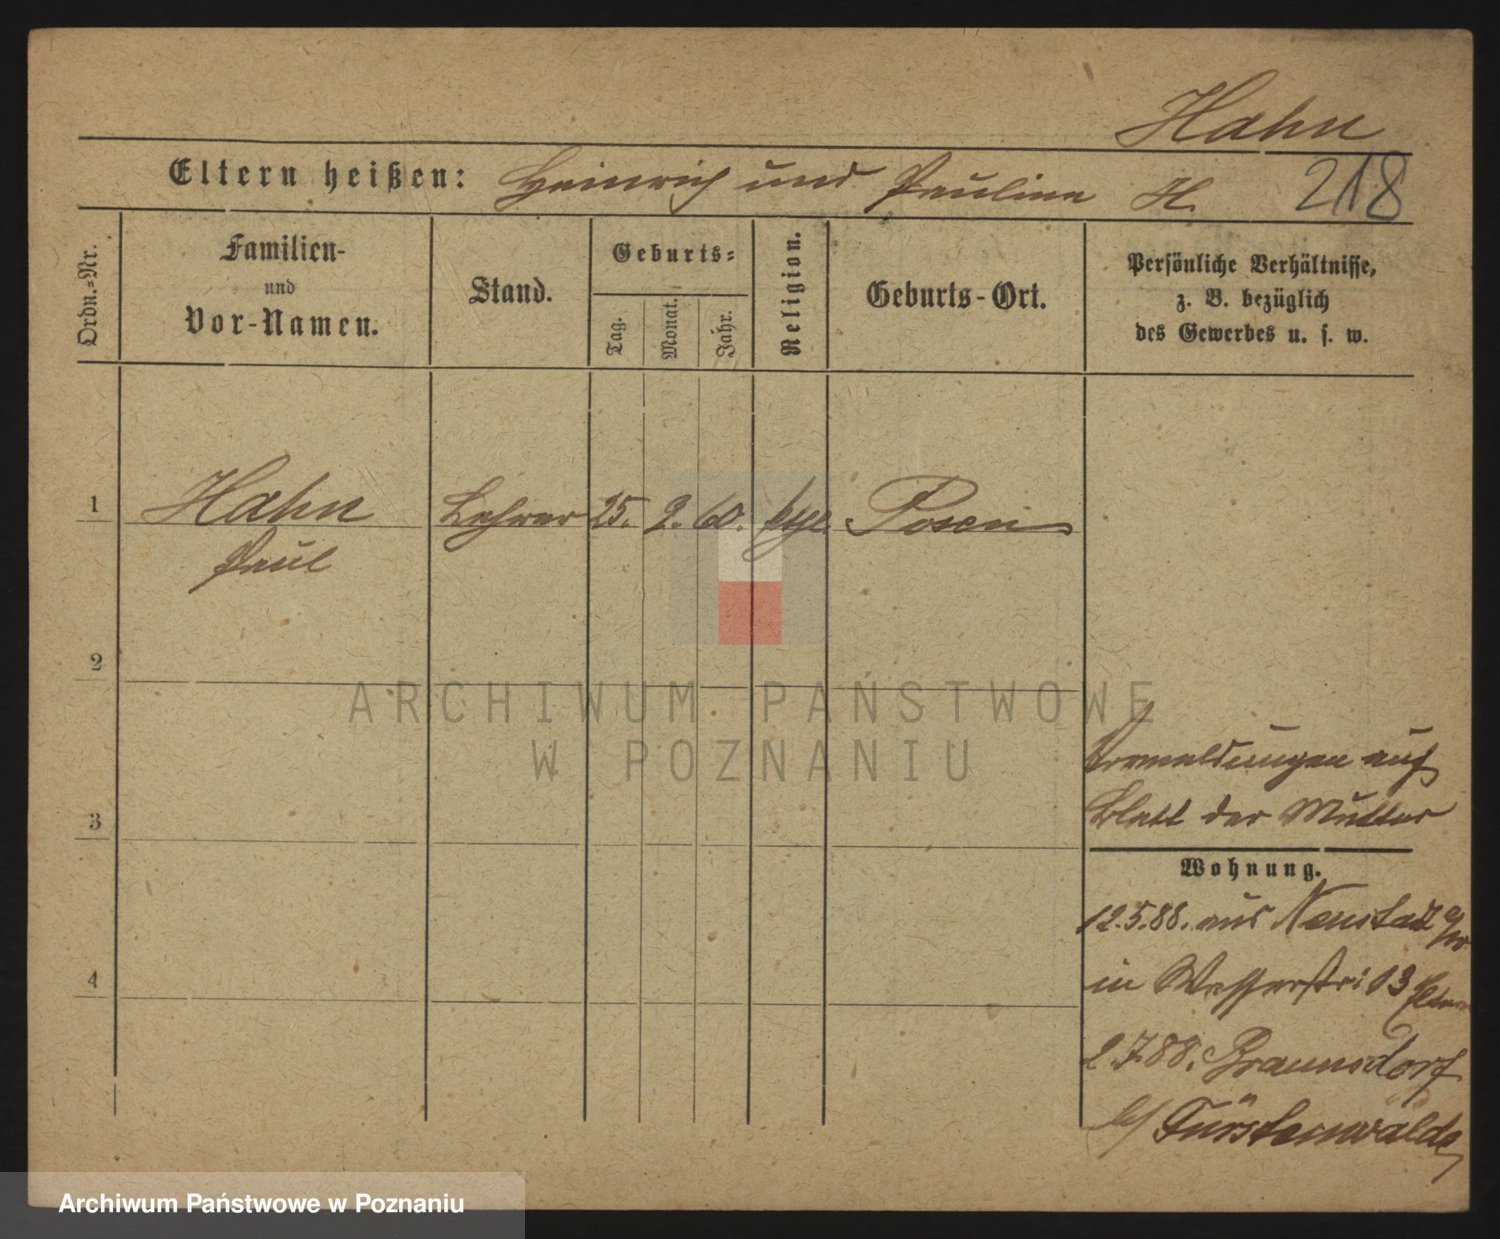 Hahn
Eltern heißen: Heinrich und Pauline H. 218
Ordn.-Nr.
Familien-
und
Vor-Namen.
Stand.
Geburts-
Tag.
Monat.
Jahr.
Religion.
Geburts-Ort.
Persönliche Verhältnisse,
z. B. bezüglich
des Gewerbes u. s. w.
1 Hahn Lehrer 25. 9. 60. Posen
Paul
2
3
4
auf
Blatt der Mutter
Wohnung.
12.5.88. aus Neustadt
in Wasserstr. 13 Eltern
2.7.88. Braunsdorf
b/ Fürstenwalde
ARCHIWUM PAŃSTWOWE
W POZNANIU
Archiwum Państwowe w Poznaniu